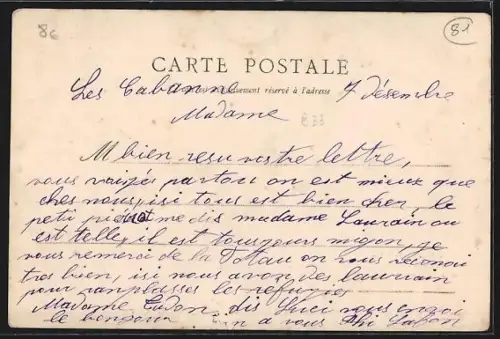 86
81
CARTE POSTALE
Les Cabanne 7 désembre
exclusivement réservé à l'adresse
Madame
B33
M bien resu vostre lettre,
vous voiyés partou on est mieux que
ches nous, isi tous est bien cher, le
petit me dis madame Laurain ou
est telle, il est tousjours migon, je
vous remerci de la on vous reconoi
tres bien, isi nous avon des lauvrain
pour ranplasser les refugier
Madame dis Luci vous envoi
le bonjour a vous